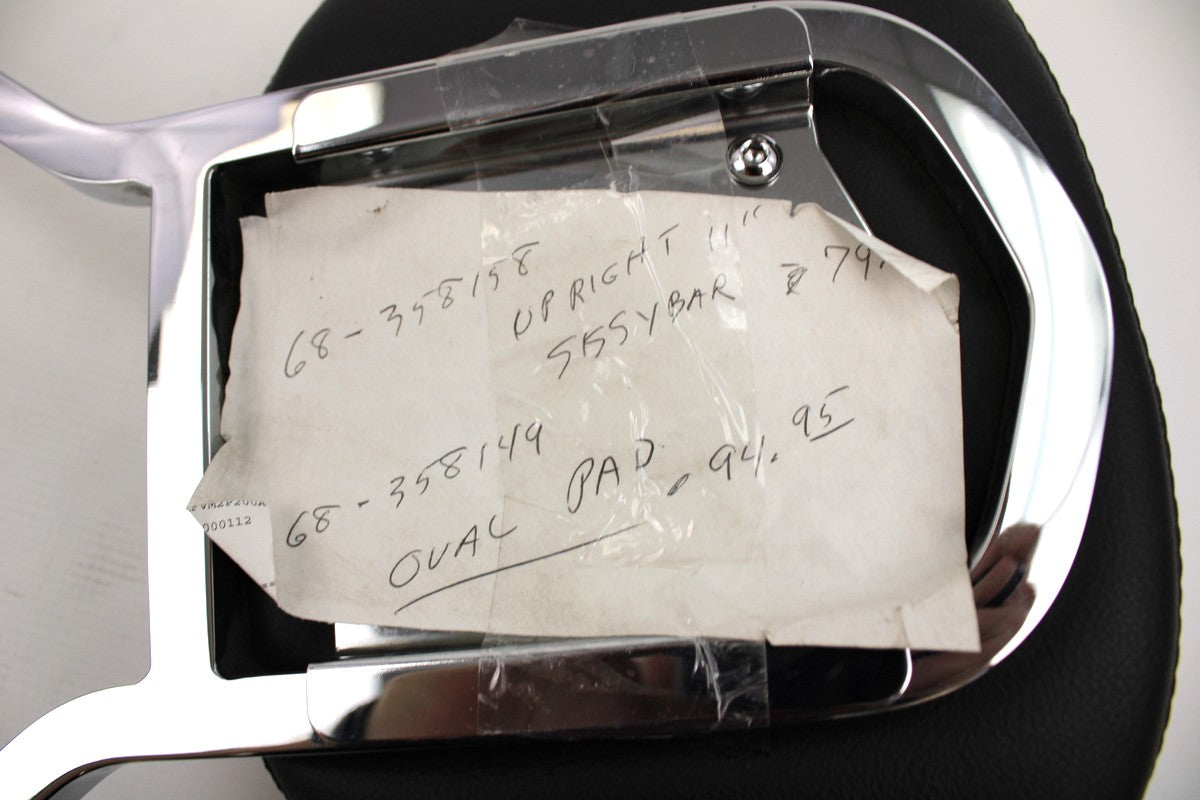 68-358158
UPRIGHT 11"
SISSYBAR 79.
68-358149
OVAL PAD. 94.95
000112